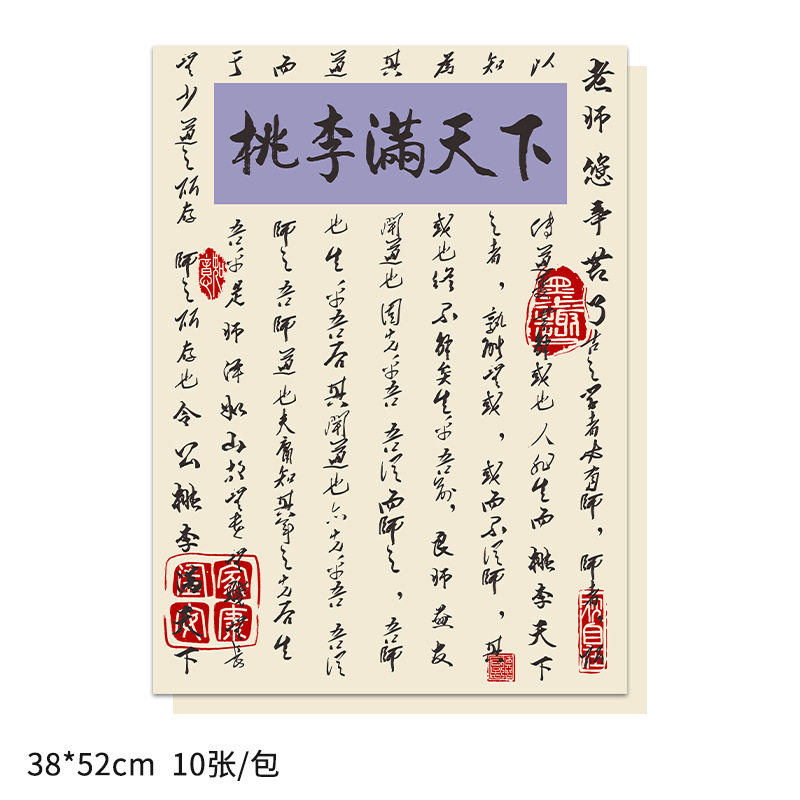 桃李满天下
老师您辛苦了古之学者必有师，师者
以
传道受业解惑也人非生而桃李天下
知
之者，孰能无惑，惑而不从师，其
为
惑也终不解矣生乎吾前，良师益友
其
闻道也固先乎吾吾从而师之，吾师
道
也生乎吾后其闻道也亦先乎吾吾从
而
师之吾师道也夫庸知其年之先后生
于
吾乎是师泽如山故无贵无贱无长
无少道之所存师之所存也令公桃李满天下
38*52cm 10张/包